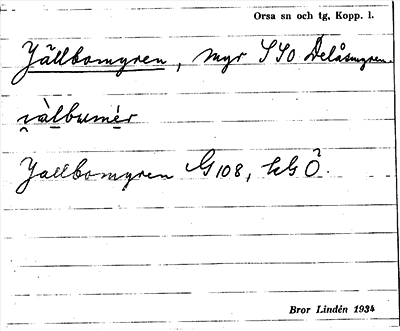 Orsa sn och tg, Kopp. l.
Jällbomyren, myr SSO Delåsmyren.
i̯àlbumér
Jällbomyren G 108, kG Ö.
Bror Lindén 1934